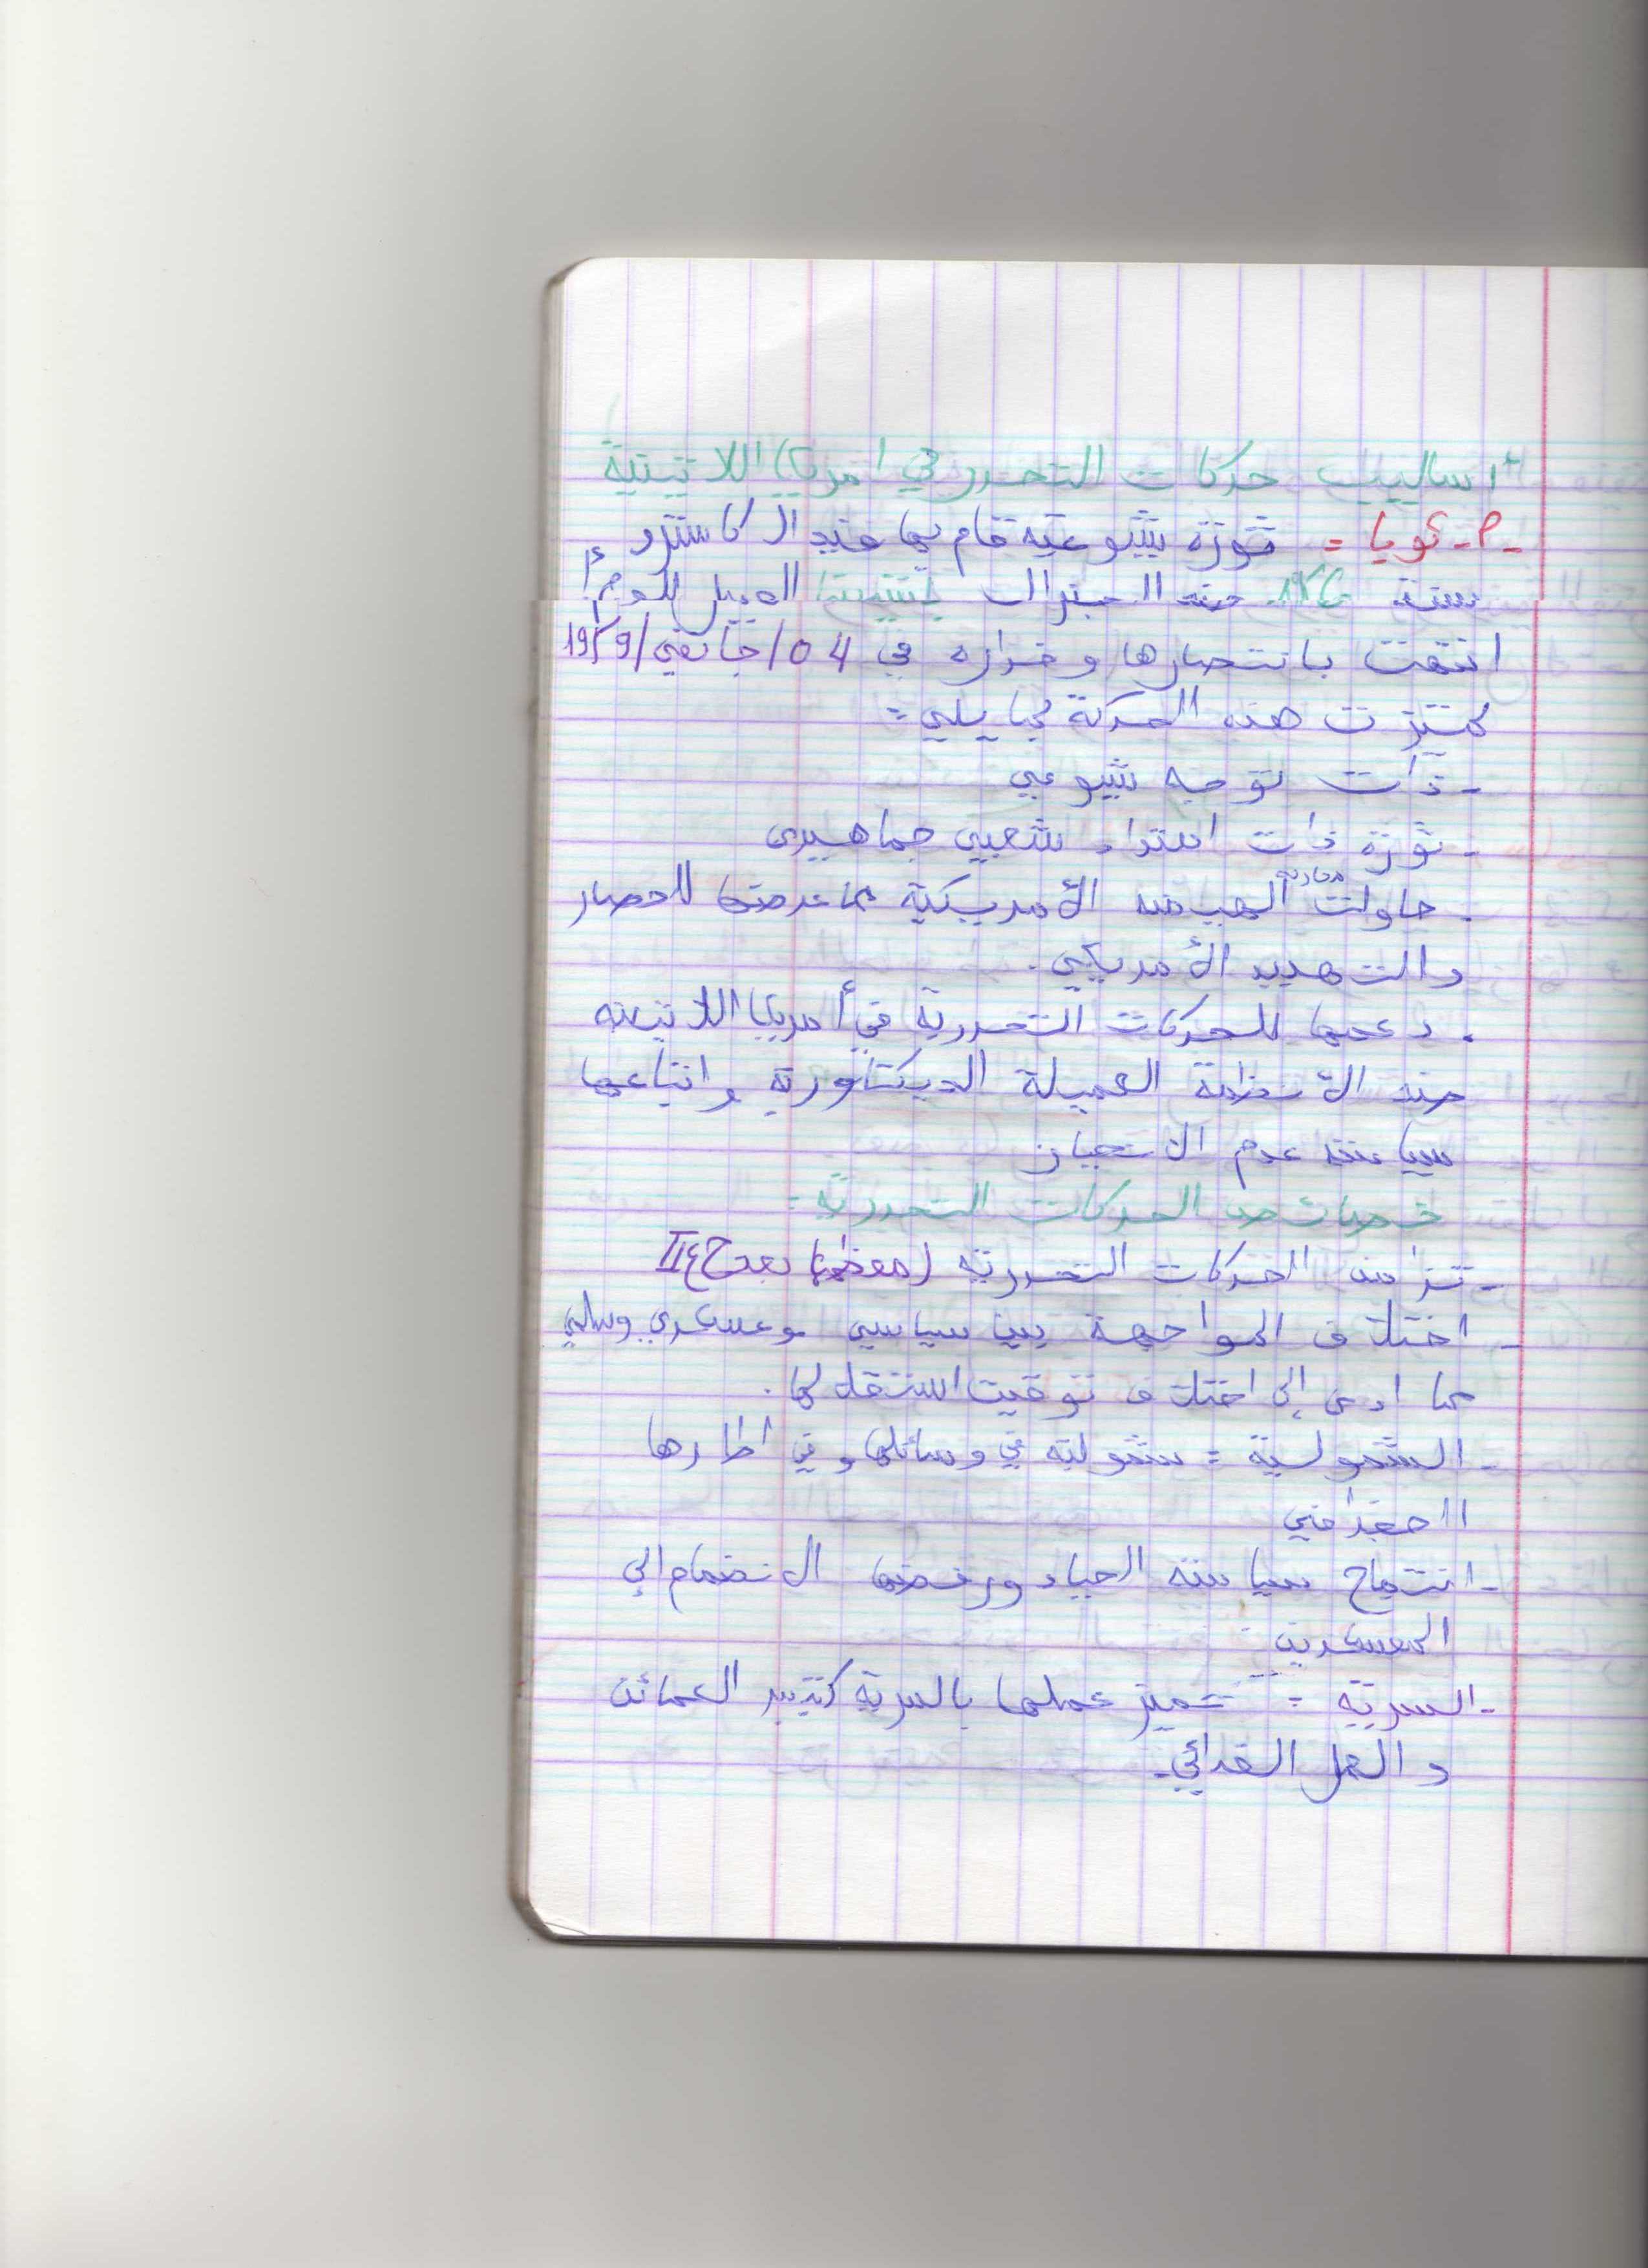 أساليب حركات التحرر في امريكا اللاتينية
- م - كوبا = ثورة شيوعية قام بها فيدال كاسترو
سنة ضد الجنرال باتيستا العميل للوم أ
انتهت بانتصارها وفراره في 04/جانفي/1959
تميزت هذه الحركة بما يلي =
- ذات توجه شيوعي
- ثورة ذات امتداد شعبي جماهيري
- حاولت محاربة الهيمنة الأمريكية مما عرضها للحصار
والتهديد الأمريكي.
- دعمها للحركات التحررية في أمريكا اللاتينية
ضد الأنظمة العميلة الديكتاتورية واتباعها
سياسة عدم الانحياز
خصائص الحركات التحررية -
- تزامن الحركات التحررية (معظمها بعد ح ع II
- اختلاف المواجهة بين سياسي وعسكري وسلمي
مما ادى إلى اختلاف توقيت استقلالها.
- الشمولية = شمولية في وسائلها وفي اطارها
الجغرافي
- انتهاج سياسة الحياد ورفضها الانضمام الى
المعسكرين
- السرية = تميز عملها بالسرية كتدبير الكمائن
والعمل الفدائي.